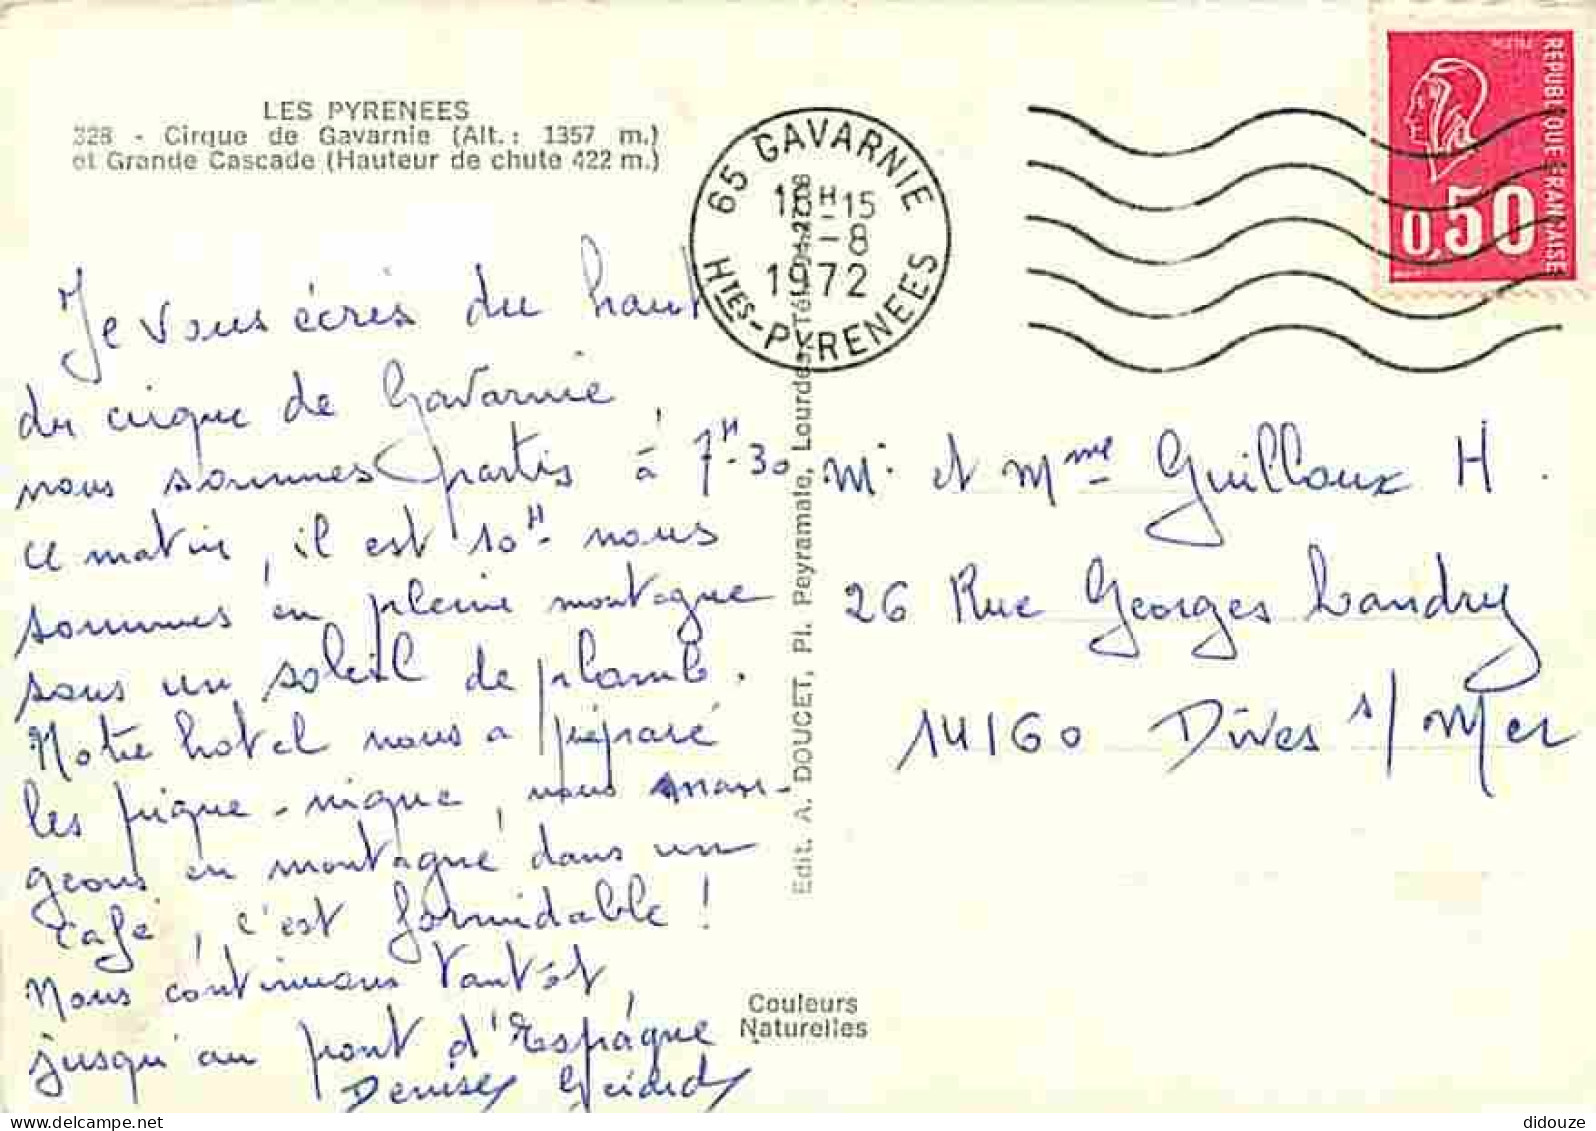 LES PYRENEES
328 - Cirque de Gavarnie (Alt.: 1357 m.)
et Grande Cascade (Hauteur de chute 422 m.)
Je vous écris du haut
du cirque de Gavarnie,
nous sommes partis à 7H-30
ce matin, il est 10H- nous
sommes en pleine montagne
sous un soleil de plomb.
Notre hotel nous a préparé
les pique-nique, nous man-
geons en montagne dans un
café, c'est formidable!
Nous continuons tantôt,
jusqu'au pont d'Espagne
Denise Gérard
65 GAVARNIE
H-15
-8
1972
Htes-PYRENEES
REPUBLIQUE FRANÇAISE
0,50
Edit. A. DOUCET, Pl. Peyramale, Lourdes
Mr et Mme Guilloux H.
26 Rue Georges Landry
14160 Dives s/Mer
Couleurs
Naturelles
didouze